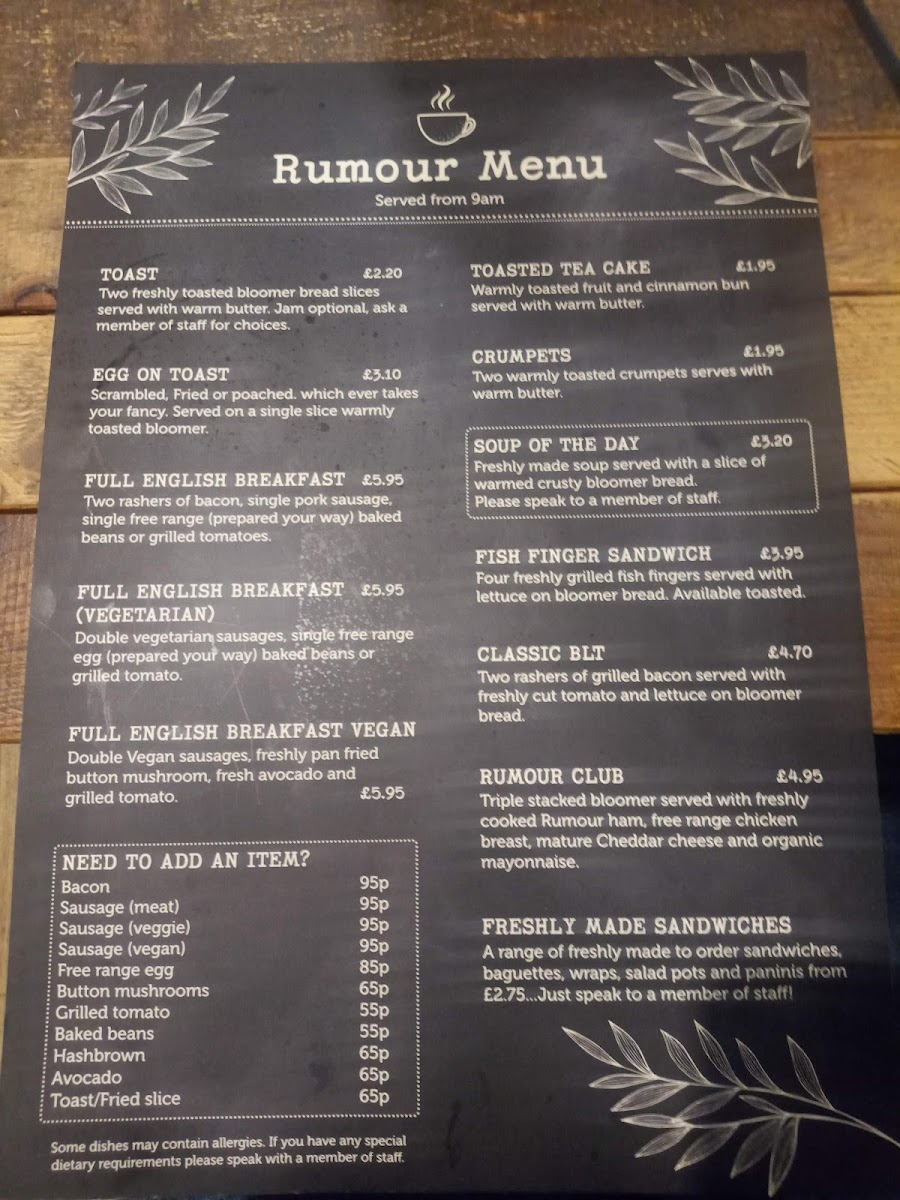 Rumour Menu
Served from 9am
TOAST £2.20
Two freshly toasted bloomer bread slices
served with warm butter. Jam optional, ask a
member of staff for choices.
EGG ON TOAST £3.10
Scrambled, Fried or poached. which ever takes
your fancy. Served on a single slice warmly
toasted bloomer.
FULL ENGLISH BREAKFAST £5.95
Two rashers of bacon, single pork sausage,
single free range (prepared your way) baked
beans or grilled tomatoes.
FULL ENGLISH BREAKFAST £5.95
(VEGETARIAN)
Double vegetarian sausages, single free range
egg (prepared your way) baked beans or
grilled tomato.
FULL ENGLISH BREAKFAST VEGAN
Double Vegan sausages, freshly pan fried
button mushroom, fresh avocado and
grilled tomato. £5.95
NEED TO ADD AN ITEM?
Bacon 95p
Sausage (meat) 95p
Sausage (veggie) 95p
Sausage (vegan) 95p
Free range egg 85p
Button mushrooms 65p
Grilled tomato 55p
Baked beans 55p
Hashbrown 65p
Avocado 65p
Toast/Fried slice 65p
Some dishes may contain allergies. If you have any special
dietary requirements please speak with a member of staff.
TOASTED TEA CAKE £1.95
Warmly toasted fruit and cinnamon bun
served with warm butter.
CRUMPETS £1.95
Two warmly toasted crumpets serves with
warm butter.
SOUP OF THE DAY £3.20
Freshly made soup served with a slice of
warmed crusty bloomer bread.
Please speak to a member of staff.
FISH FINGER SANDWICH £3.95
Four freshly grilled fish fingers served with
lettuce on bloomer bread. Available toasted.
CLASSIC BLT £4.70
Two rashers of grilled bacon served with
freshly cut tomato and lettuce on bloomer
bread.
RUMOUR CLUB £4.95
Triple stacked bloomer served with freshly
cooked Rumour ham, free range chicken
breast, mature Cheddar cheese and organic
mayonnaise.
FRESHLY MADE SANDWICHES
A range of freshly made to order sandwiches,
baguettes, wraps, salad pots and paninis from
£2.75...Just speak to a member of staff!